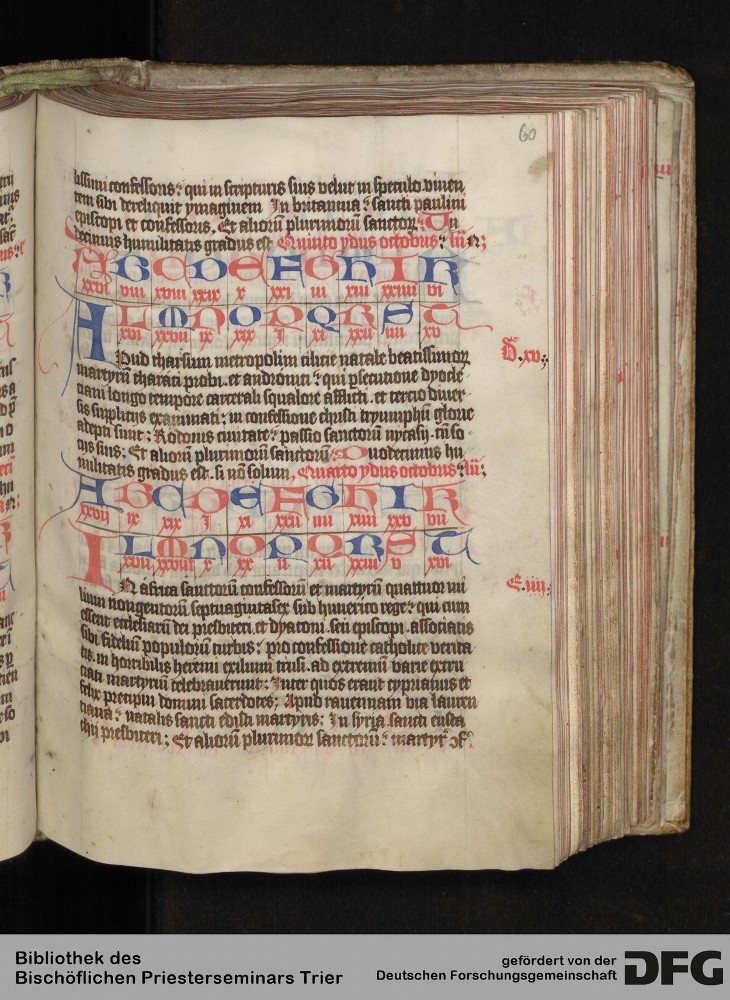 60
lissimi confessoris: qui in scripturis suis velut in speculo viuen
tem sibi dereliquit ymaginem In britannia: sancti paulini
episcopi et confessoris, Et alioru plurimoru sanctor: Un
decimus humilitatis gradus est Quinto ydus octobris: lun:
A B C D E F G H I K
xxvi viii xviii xxix x xxi iii xiii xxiiii vi
L M N O P Q R S T
xvi xxvii ix xix I xi xxii iiii xv
APud tharsium metropolim cilicie natale beatissimor
martyru tharaci probi. et andronici: qui psecutione dyocle
ciani longo tempore carcerali squalore afflicti. et tercio diuer
sis supliciis examinati: in confessione christi tryumphu glorie
adepti sunt: Rodomis ciuitate: passio sanctoru nycasij. cu so
ciis suis: Et alioru plurimoru sanctoru: Duodecimus hu
militatis gradus est. si no solum, Quarto ydus octobris: lu:
D. xv:
A B C D E F G H I K
xxvii ix xix I xi xxii iiii xiiii xxv vii
L M N O P Q R S T
xvii xxviii x xx ii xii xxiii v xvi
IN africa sanctoru confessoru et martyru quattuor mi
lium nongentoru septuagintasex sub hunerico rege: qui cum
essent ecclesiaru dei presbiteri. et dyaconi. seu episcopi. associatis
sibi fidelium populoru turbis: pro confessione catholice verita
tis. in horribilis heremi exilium trusi. ad extremu varie excru
ciati martyriu celebrauerunt: Inter quos erant cyprianus et
felix precipui domini sacerdotes: Apud rauennam via lauren
tiana: natalis sancti edisti martyris: In syria sancti eusta
chij presbiteri: Et alioru plurimor sanctoru: martyr
E. iiii:
Bibliothek des
Bischöflichen Priesterseminars Trier
gefördert von der
Deutschen Forschungsgemeinschaft
DFG